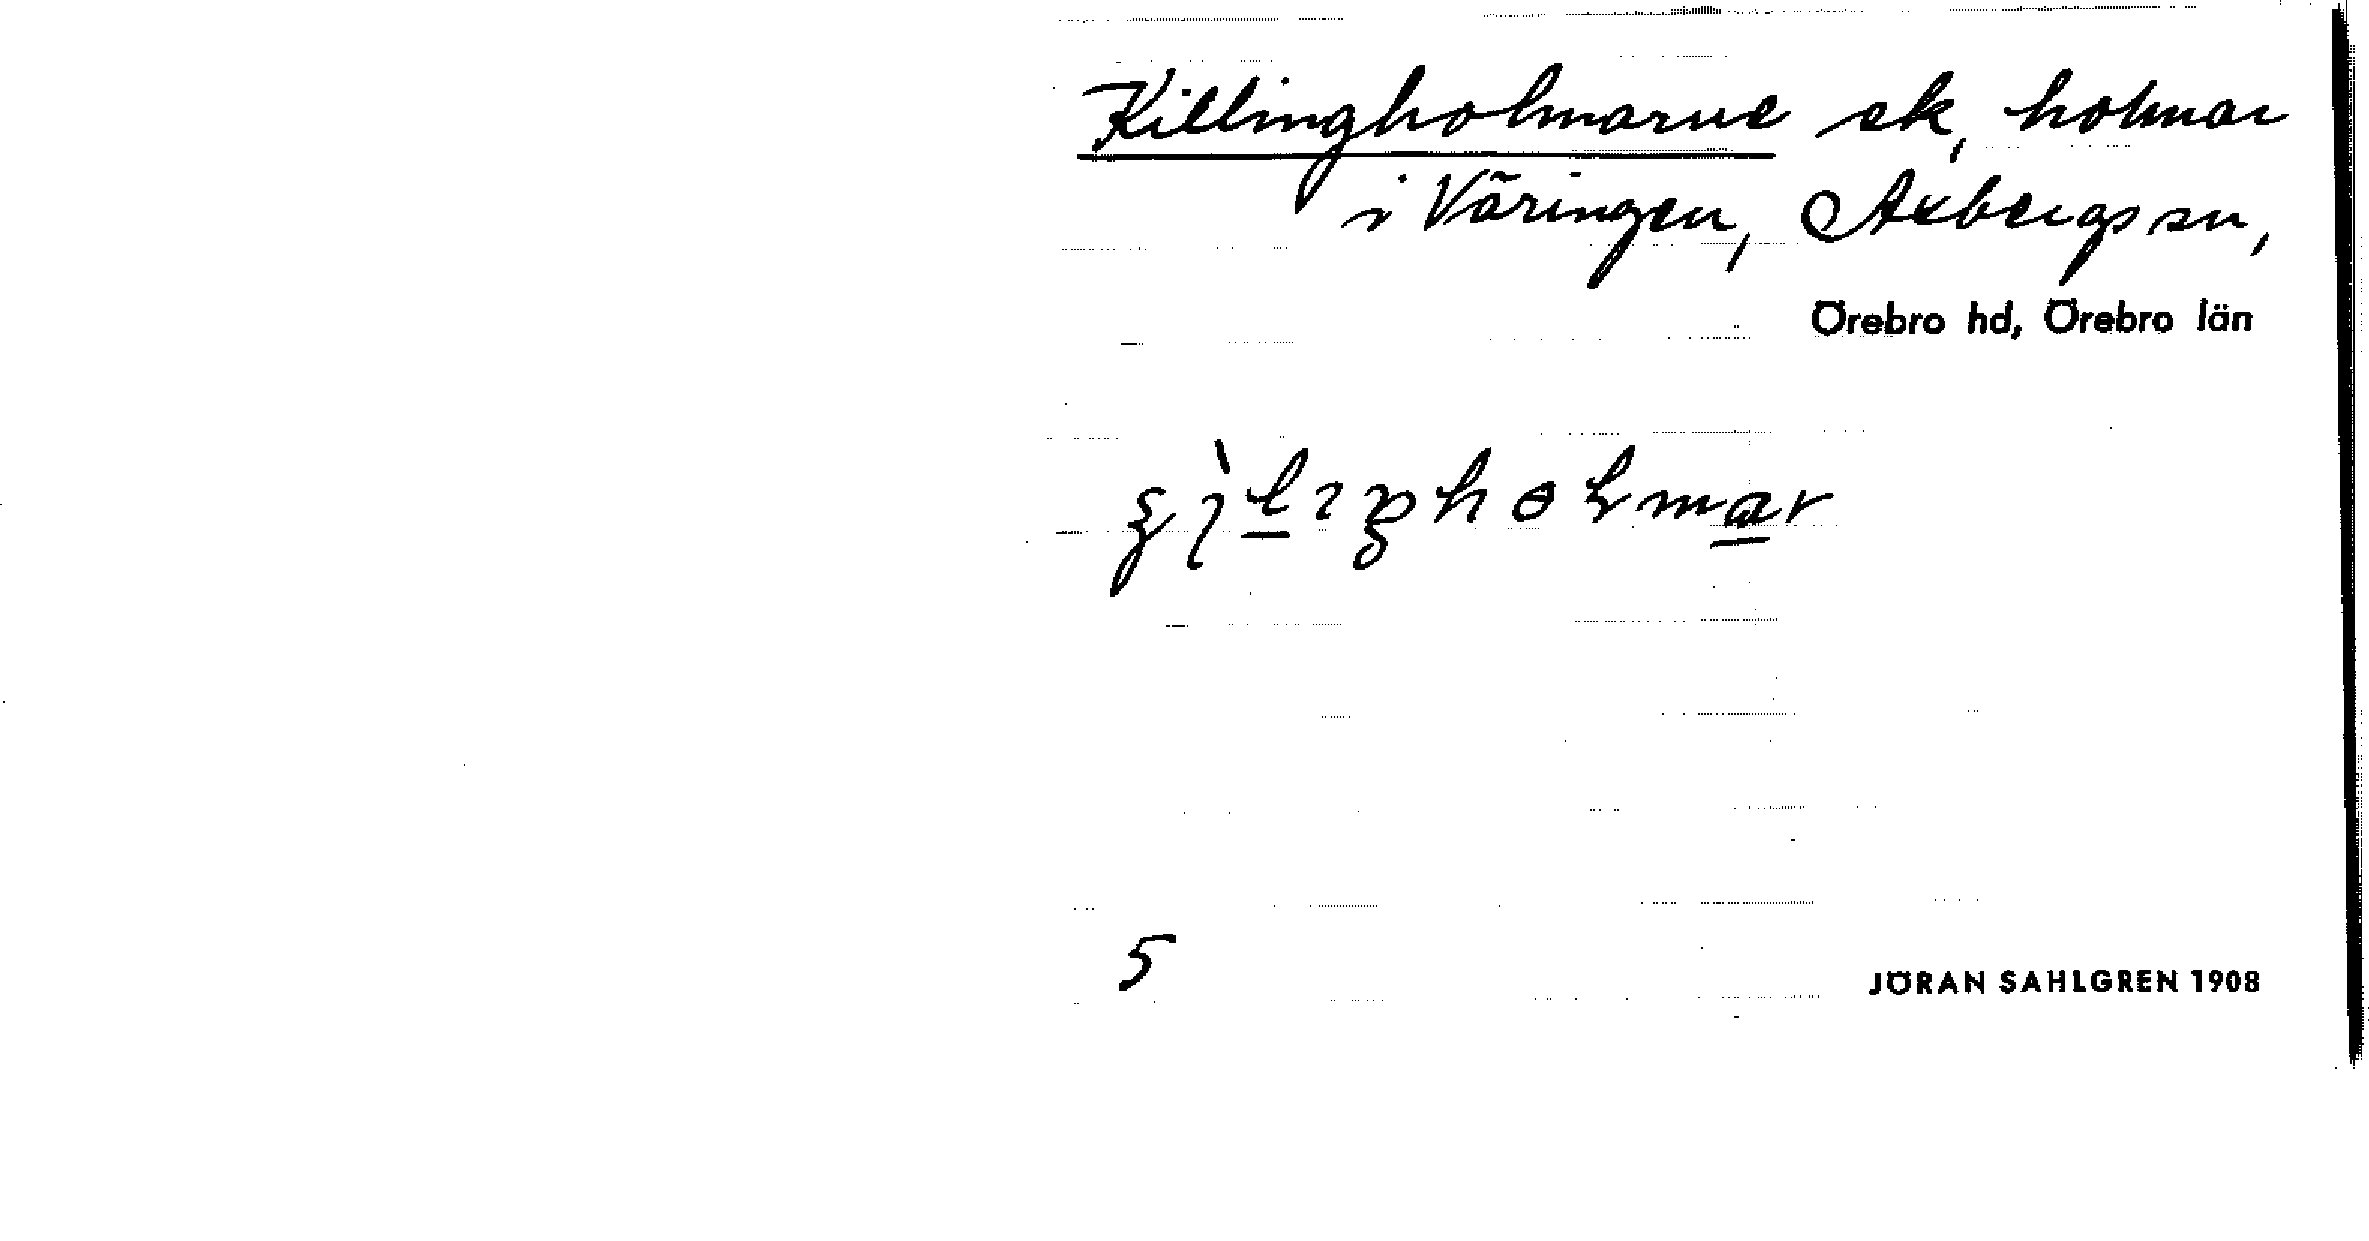 Killingholmarne ek, holmar
i Väringen, Axbergs sn,
Örebro hd, Örebro län
5
JÖRAN SAHLGREN 1908